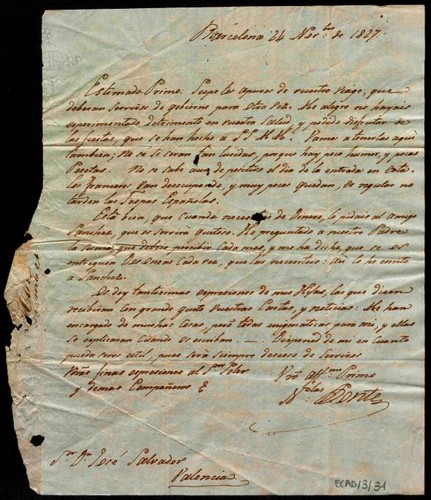 Barcelona 24 Nov.bre de 1827.
Estimado Primo: Supe los apuros de vuestro viage, que
deberan serviros de gobierno para otra vez. Me alegro no hayais
esperimentado detrimento en vuestra salud, y podido disfrutar de
las fiestas, que se han hecho a S.S. M.M.s. Vamos a tenerlas aqui
tambien; no sé si seran tan lucidas, porque hay poco humor, y pocas
Pesetas. No se sabe aun de positivo el dia de la entrada en esta.
Los franceses van desocupando, y muy pocos quedan, es regular no
tarden las Tropas Españolas.
Está bien, que cuando necesites de dinero, lo pidais al amigo
Sanchez, que os servirá gustoso. He preguntado a vuestro Padre
la cantidad que debeis percibir cada mes, y me ha dicho que se os
entreguen las onzas cada vez, que las necesiteis: asi lo he escrito
a Sanchez.
Os doy tantisimas espresiones de mis Hijas, las que dicen
recibieron con grande gusto vuestras Cartas, y noticias: Me han
encargado de muchas cosas, pero todas enigmaticas para mi, y ellas
se esplicaran cuando os escriban. — Disponed de mi en cuanto
pueda seros util, pues será siempre deseoso de serviros
Mas finas espresiones al S.or Soler
y demas Compañeros &
Vro aff.mo Primo
N.olas Bonte
S.or D.n José Salvador
Valencia
ECAD/3/31